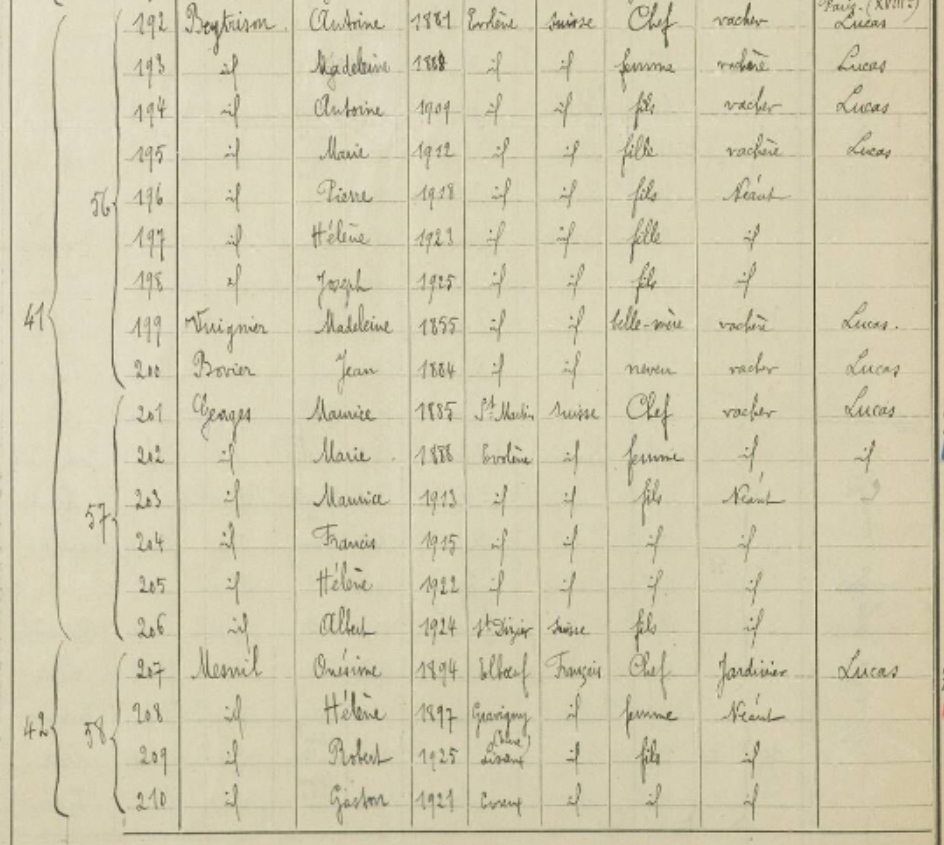 Paris. (XVIIIe)
192 Beytrison. Antoine 1881 Evolène Suisse Chef vacher Lucas
193 id Magdeleine 1888 id id femme vachère Lucas
194 id Antoine 1909 id id fils vacher Lucas
195 id Marie 1912 id id fille vachère Lucas
56 196 id Pierre 1918 id id fils Néant
197 id Hélène 1923 id id fille id
198 id Joseph 1925 id id fils id
41 199 Vuignier Madeleine 1855 id id belle-mère vachère Lucas.
200 Bovier Jean 1884 id id neveu vacher Lucas
201 Georges Maurice 1885 St Martin Suisse Chef vacher Lucas
202 id Marie 1888 Evolène id femme id id
203 id Maurice 1913 id id fils Néant
57 204 id Francis 1915 id id id id
205 id Hélène 1922 id id id id
206 id Albert 1924 St Dizier Suisse fils id
207 Mesnil Onésime 1894 Elboeuf Français Chef Jardinier Lucas
42 58 208 id Hélène 1897 Gravigny id femme Néant
(Eure)
209 id Robert 1925 id fils id
210 id Gaston 1921 Evreux id id id